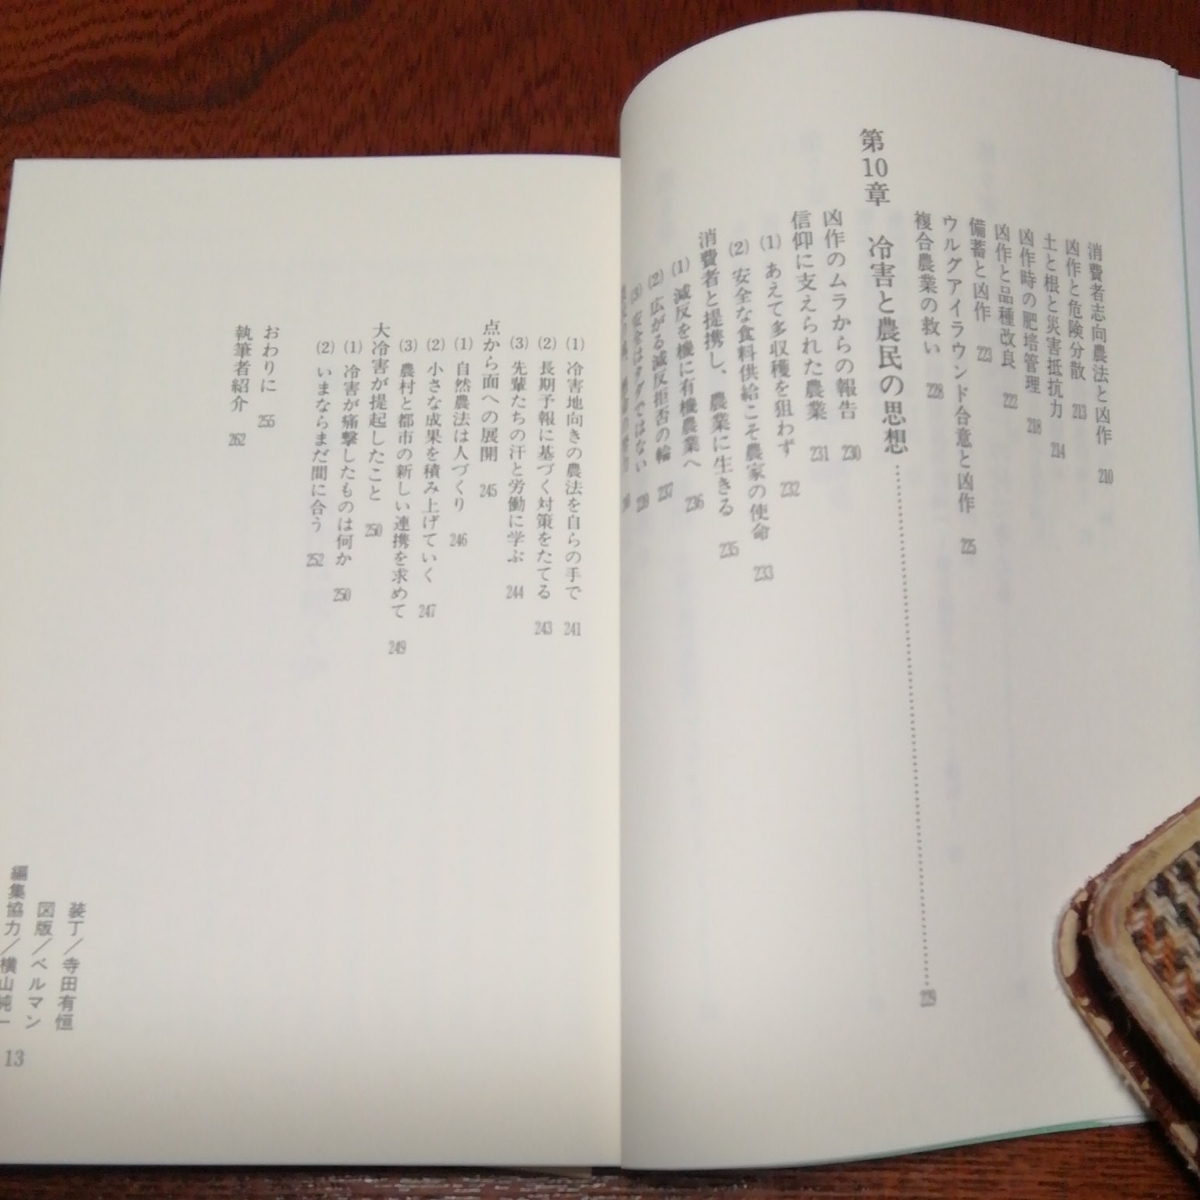 消費者志向農法と凶作 210
凶作と危険分散 213
土と根と災害抵抗力 214
凶作時の肥培管理 218
凶作と品種改良 222
備蓄と凶作 223
ウルグアイラウンド合意と凶作 225
複合農業の救い 228
第10章 冷害と農民の思想 229
凶作のムラからの報告 230
信仰に支えられた農業 231
(1) あえて多収穫を狙わず 232
(2) 安全な食料供給こそ農家の使命 233
消費者と提携し、農業に生きる 235
(1) 減反を機に有機農業へ 236
(2) 広がる減反拒否の輪 237
(3) 安全はタダではない 239
(1) 冷害地向きの農法を自らの手で 241
(2) 長期予報に基づく対策をたてる 243
(3) 先輩たちの汗と労働に学ぶ 244
点から面への展開 245
(1) 自然農法は人づくり 246
(2) 小さな成果を積み上げていく 247
(3) 農村と都市の新しい連携を求めて 249
大冷害が提起したこと 250
(1) 冷害が痛撃したものは何か 250
(2) いまならまだ間に合う 252
おわりに 255
執筆者紹介 262
装丁／寺田有恒
図版／ベルマン
編集協力／横山純一
13